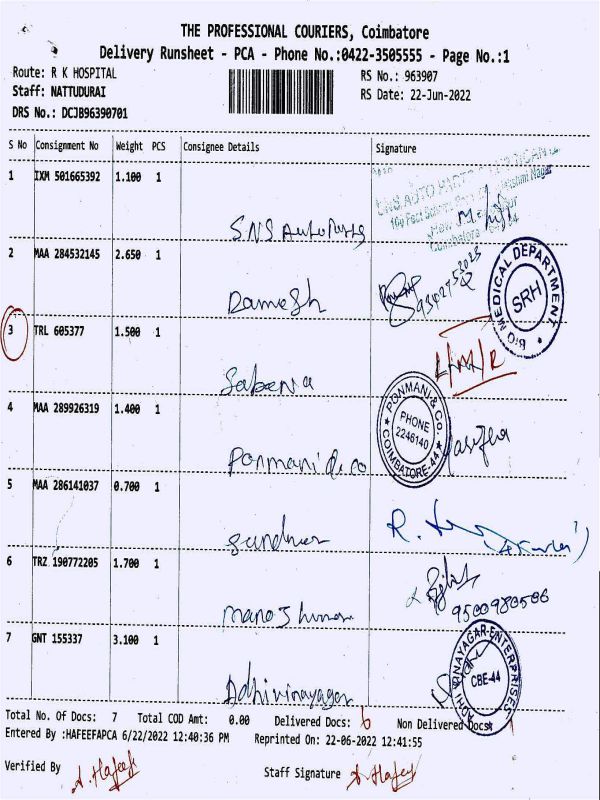 THE PROFESSIONAL COURIERS, Coimbatore
Delivery Runsheet - PCA - Phone No.:0422-3505555 - Page No.:1
Route: R K HOSPITAL RS No.: 963907
Staff: NATTUDURAI RS Date: 22-Jun-2022
DRS No.: DCJB96390701
S No Consignment No Weight PCS Consignee Details Signature
1 IXM 501665392 1.100 1
SNS Auto Parts
SNS AUTO PARTS
100 Feet
Coimbatore
2 MAA 284532145 2.650 1
Damesh
BIO MEDICAL DEPARTMENT
SRH
3 TRL 605377 1.500 1
Sabena
4 MAA 289926319 1.400 1
Ponmani & co
PONMANI & CO.
PHONE
2246140
COIMBATORE-44
5 MAA 286141037 0.700 1
R.
6 TRZ 190772205 1.700 1
9500980506
7 GNT 155337 3.100 1
Adhivinayagar
ADHI VINAYAGAR ENTERPRISES
CBE-44
Total No. Of Docs: 7 Total COD Amt: 0.00 Delivered Docs: 6 Non Delivered Docs: 1
Entered By :HAFEEFAPCA 6/22/2022 12:40:36 PM Reprinted On: 22-06-2022 12:41:55
Verified By A. Hafeef Staff Signature A. Hafeef